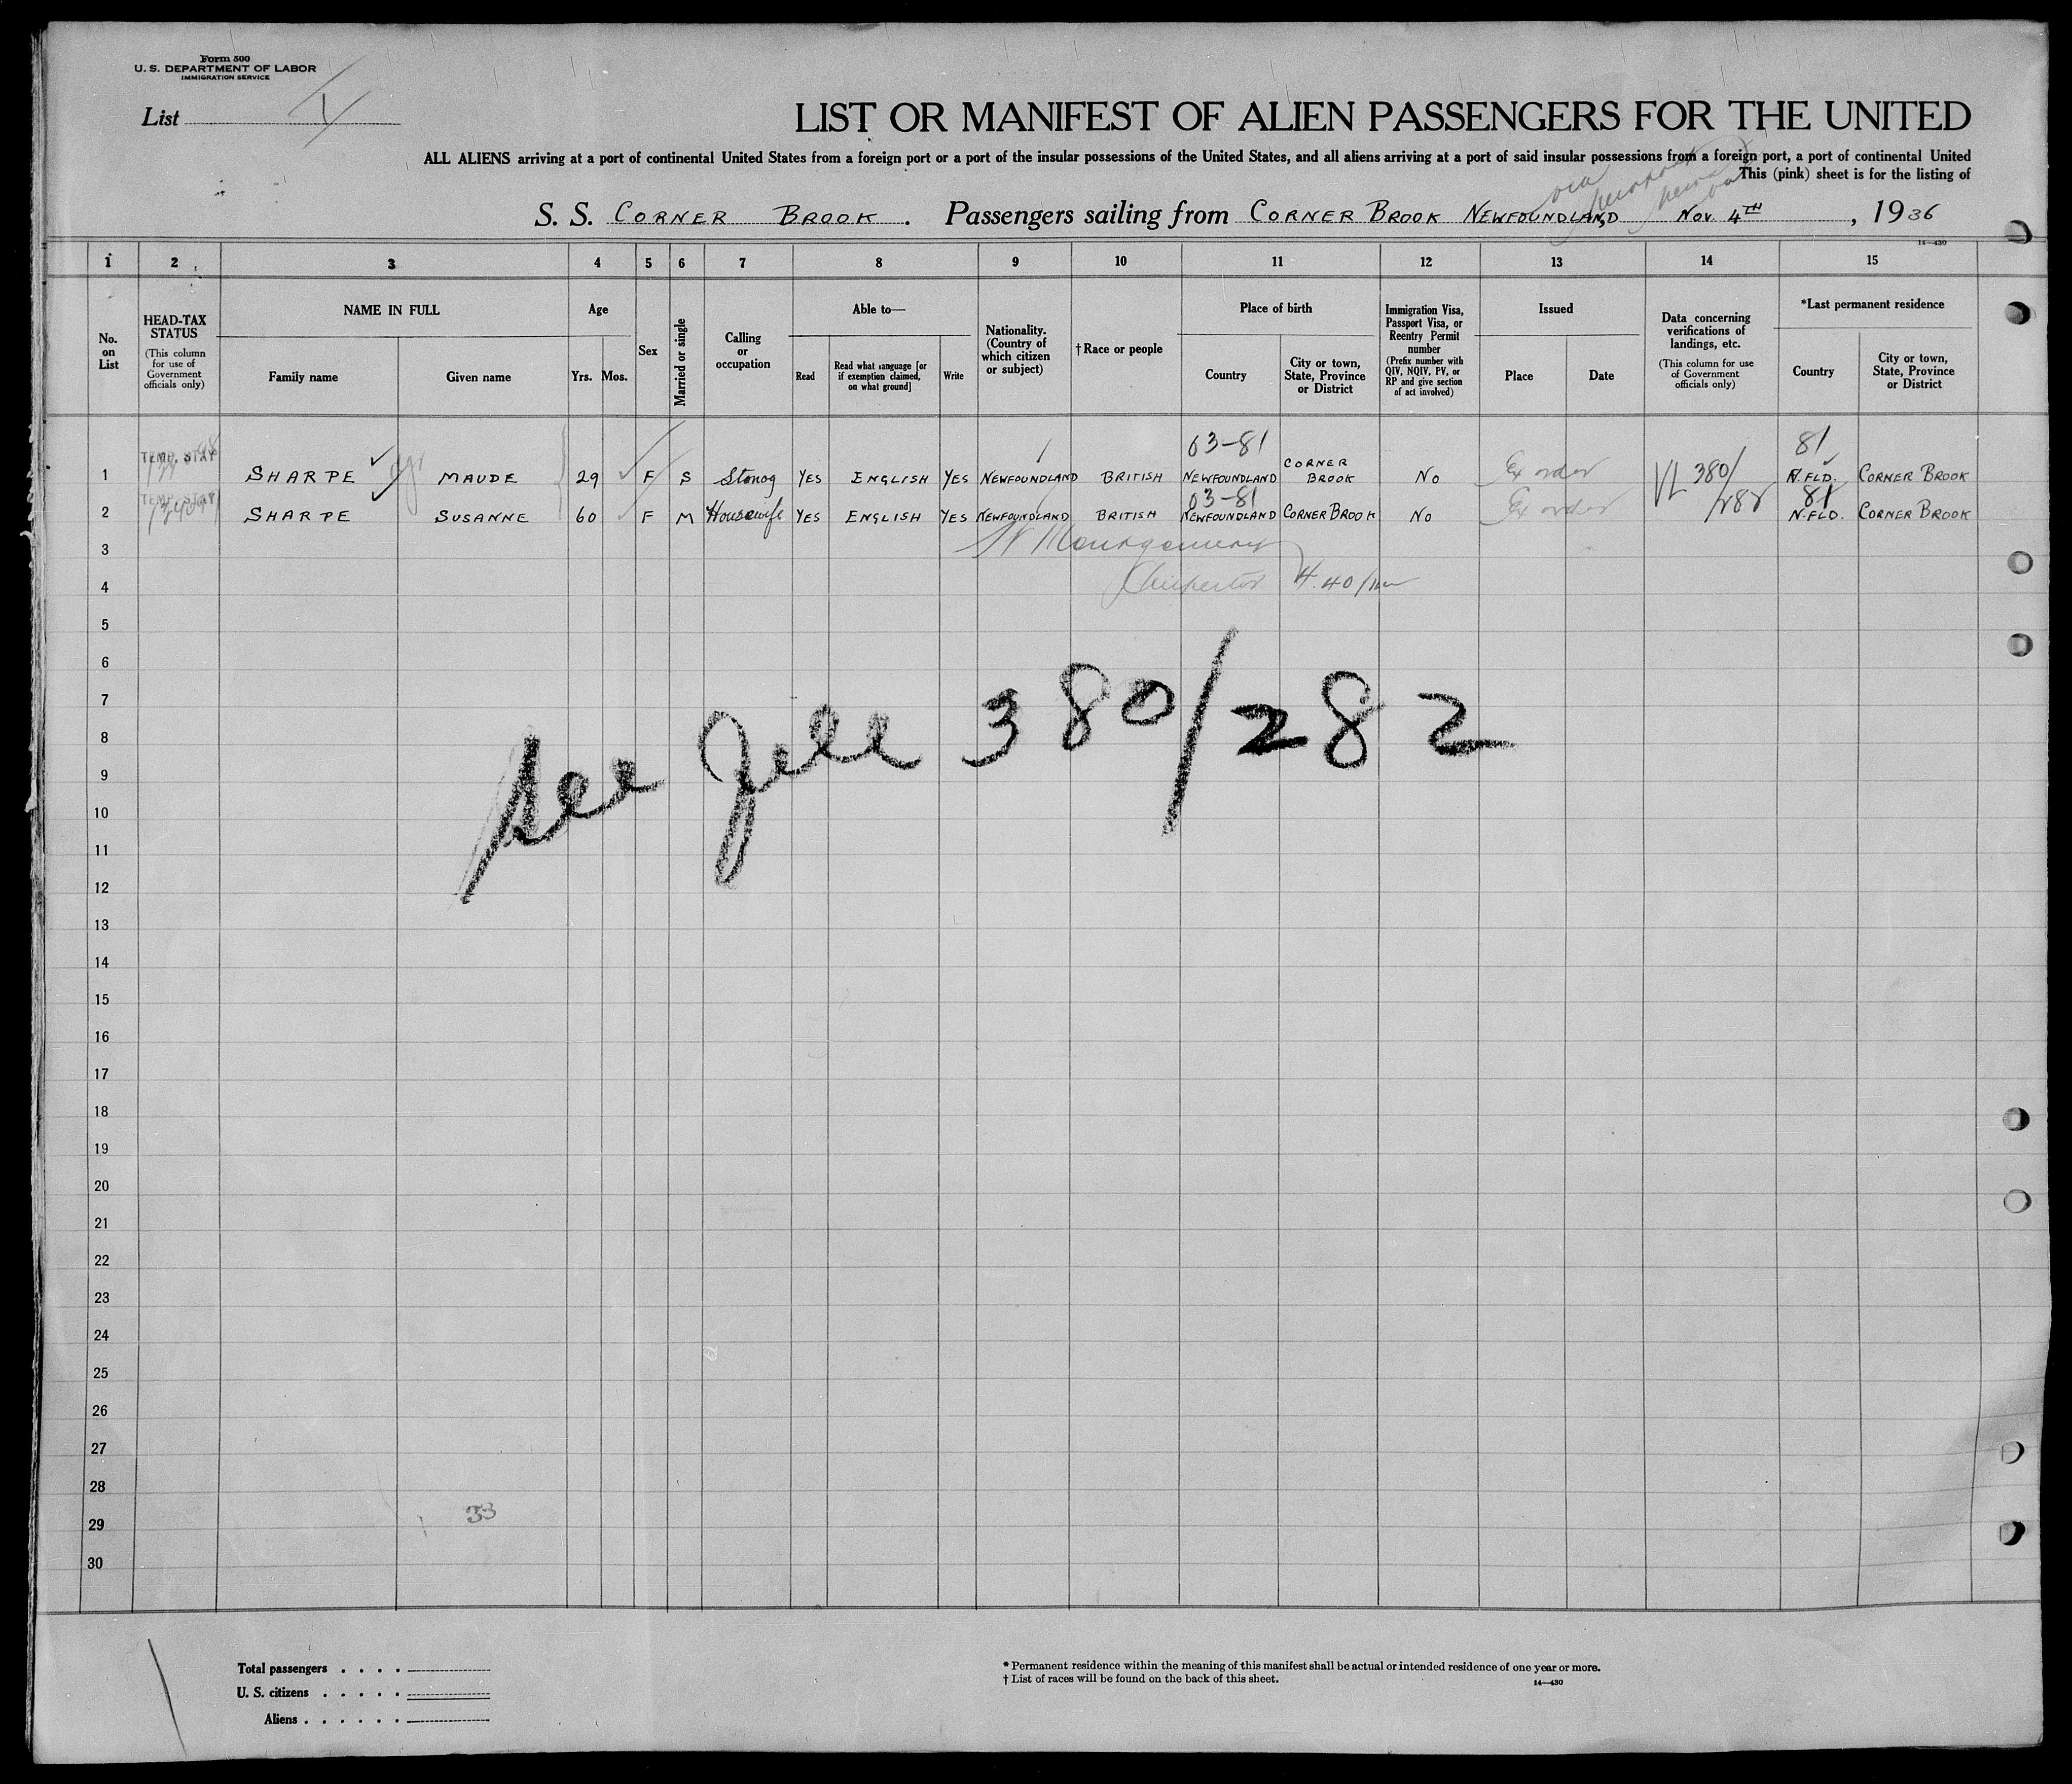 Form 500
U. S. DEPARTMENT OF LABOR
IMMIGRATION SERVICE
List
LIST OR MANIFEST OF ALIEN PASSENGERS FOR THE UNITED
ALL ALIENS arriving at a port of continental United States from a foreign port or a port of the insular possessions of the United States, and all aliens arriving at a port of said insular possessions from a foreign port, a port of continental United
This (pink) sheet is for the listing of
via
S. S. CORNER BROOK . Passengers sailing from CORNER BROOK NEWFOUNDLAND, Nov. 4TH , 1936
14—430
1 2 3 4 5 6 7 8 9 10 11 12 13 14 15
No. on List
HEAD-TAX STATUS
(This column for use of Government officials only)
NAME IN FULL
Family name
Given name
Age
Yrs. Mos.
Sex
Married or single
Calling or occupation
Able to—
Read
Read what language [or if exemption claimed, on what ground]
Write
Nationality. (Country of which citizen or subject)
† Race or people
Place of birth
Country
City or town, State, Province or District
Immigration Visa, Passport Visa, or Reentry Permit number
(Prefix number with QIV, NQIV, PV, or RP and give section of act involved)
Issued
Place
Date
Data concerning verifications of landings, etc.
(This column for use of Government officials only)
*Last permanent residence
Country
City or town, State, Province or District
03-81 81
1 TEMP. STAY SHARPE MAUDE 29 F S Stenog YES ENGLISH YES NEWFOUNDLAND BRITISH NEWFOUNDLAND CORNER BROOK No Ex order VL 380/ N.FLD. CORNER BROOK
03-81 81
2 TEMP. STAY SHARPE SUSANNE 60 F M Housewife YES ENGLISH YES NEWFOUNDLAND BRITISH NEWFOUNDLAND CORNER BROOK No Ex order N.FLD. CORNER BROOK
3 Montgomery
4 Inspector 4.40/
5
6
7
8 See 380/282
9
10
11
12
13
14
15
16
17
18
19
20
21
22
23
24
25
26
27
28
29 33
30
Total passengers . . . .
U. S. citizens . . . . .
Aliens . . . . . .
* Permanent residence within the meaning of this manifest shall be actual or intended residence of one year or more.
† List of races will be found on the back of this sheet.
14—430